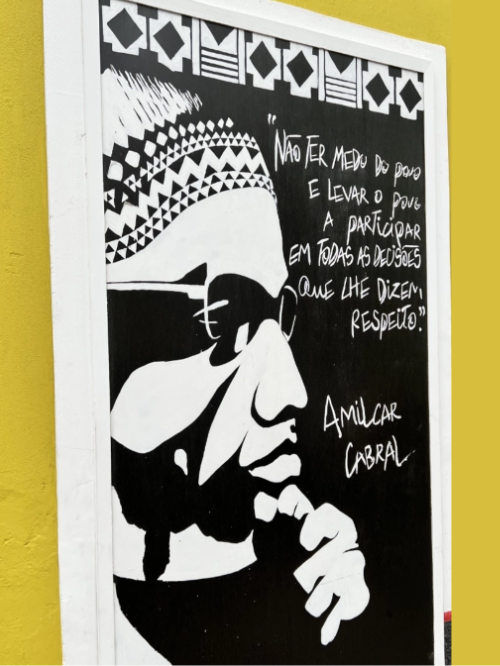 "NÃO TER MEDO DO POVO
E LEVAR O POVO
A PARTICIPAR
EM TODAS AS DECISÕES
QUE LHE DIZEM
RESPEITO."
AMILCAR
CABRAL